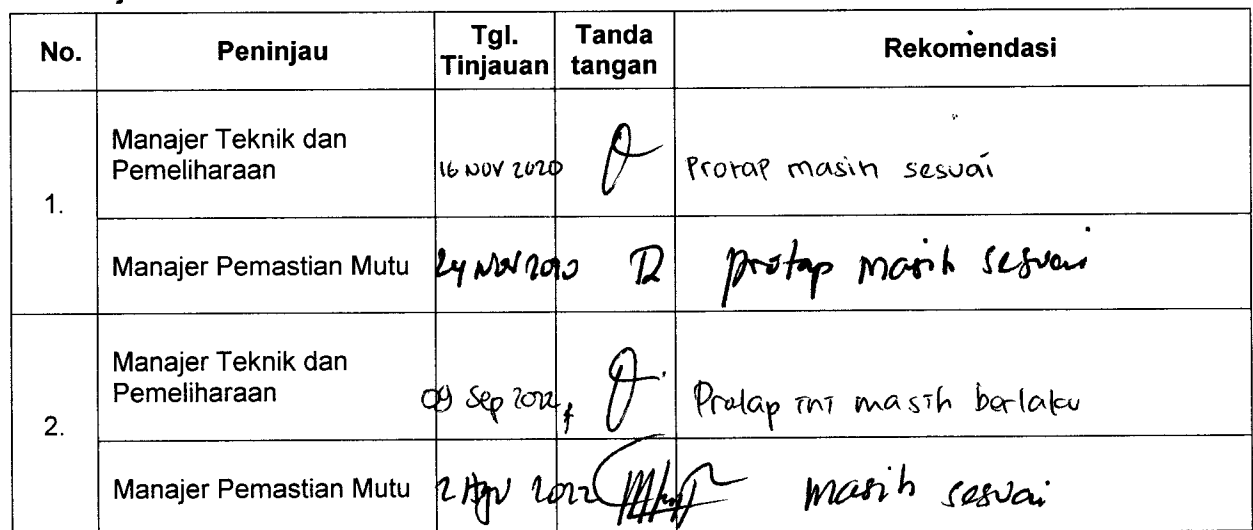 No. Peninjau Tgl. Tinjauan Tanda tangan Rekomendasi
1.
Manajer Teknik dan Pemeliharaan 16 NOV 2020 Protap masih sesuai
Manajer Pemastian Mutu 24 Nov 2020 protap masih sesuai
2.
Manajer Teknik dan Pemeliharaan 09 Sep 2022 Protap ini masih berlaku
Manajer Pemastian Mutu 2 Agu 2022 masih sesuai